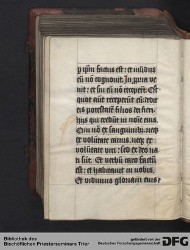 p ipm factus est: et mūdus
eū nō cognouit. In ppria ve
nit: et sui eū nō receperūt. Et
quot autē receperūt eū: dedit
eis potestatē filios dei fieri:
hijs qui credūt in noīe eius.
Qui nō ex sanguinib: neqz
ex voluntate carnis: neqz ex
voluntate viri: sed ex deo na
ti sūt. Et verbū caro factū
est: et habitauit in nobis.
Et vidimus gloriam eius:
Bibliothek des
Bischöflichen Priesterseminars Trier
gefördert von der
Deutschen Forschungsgemeinschaft
DFG